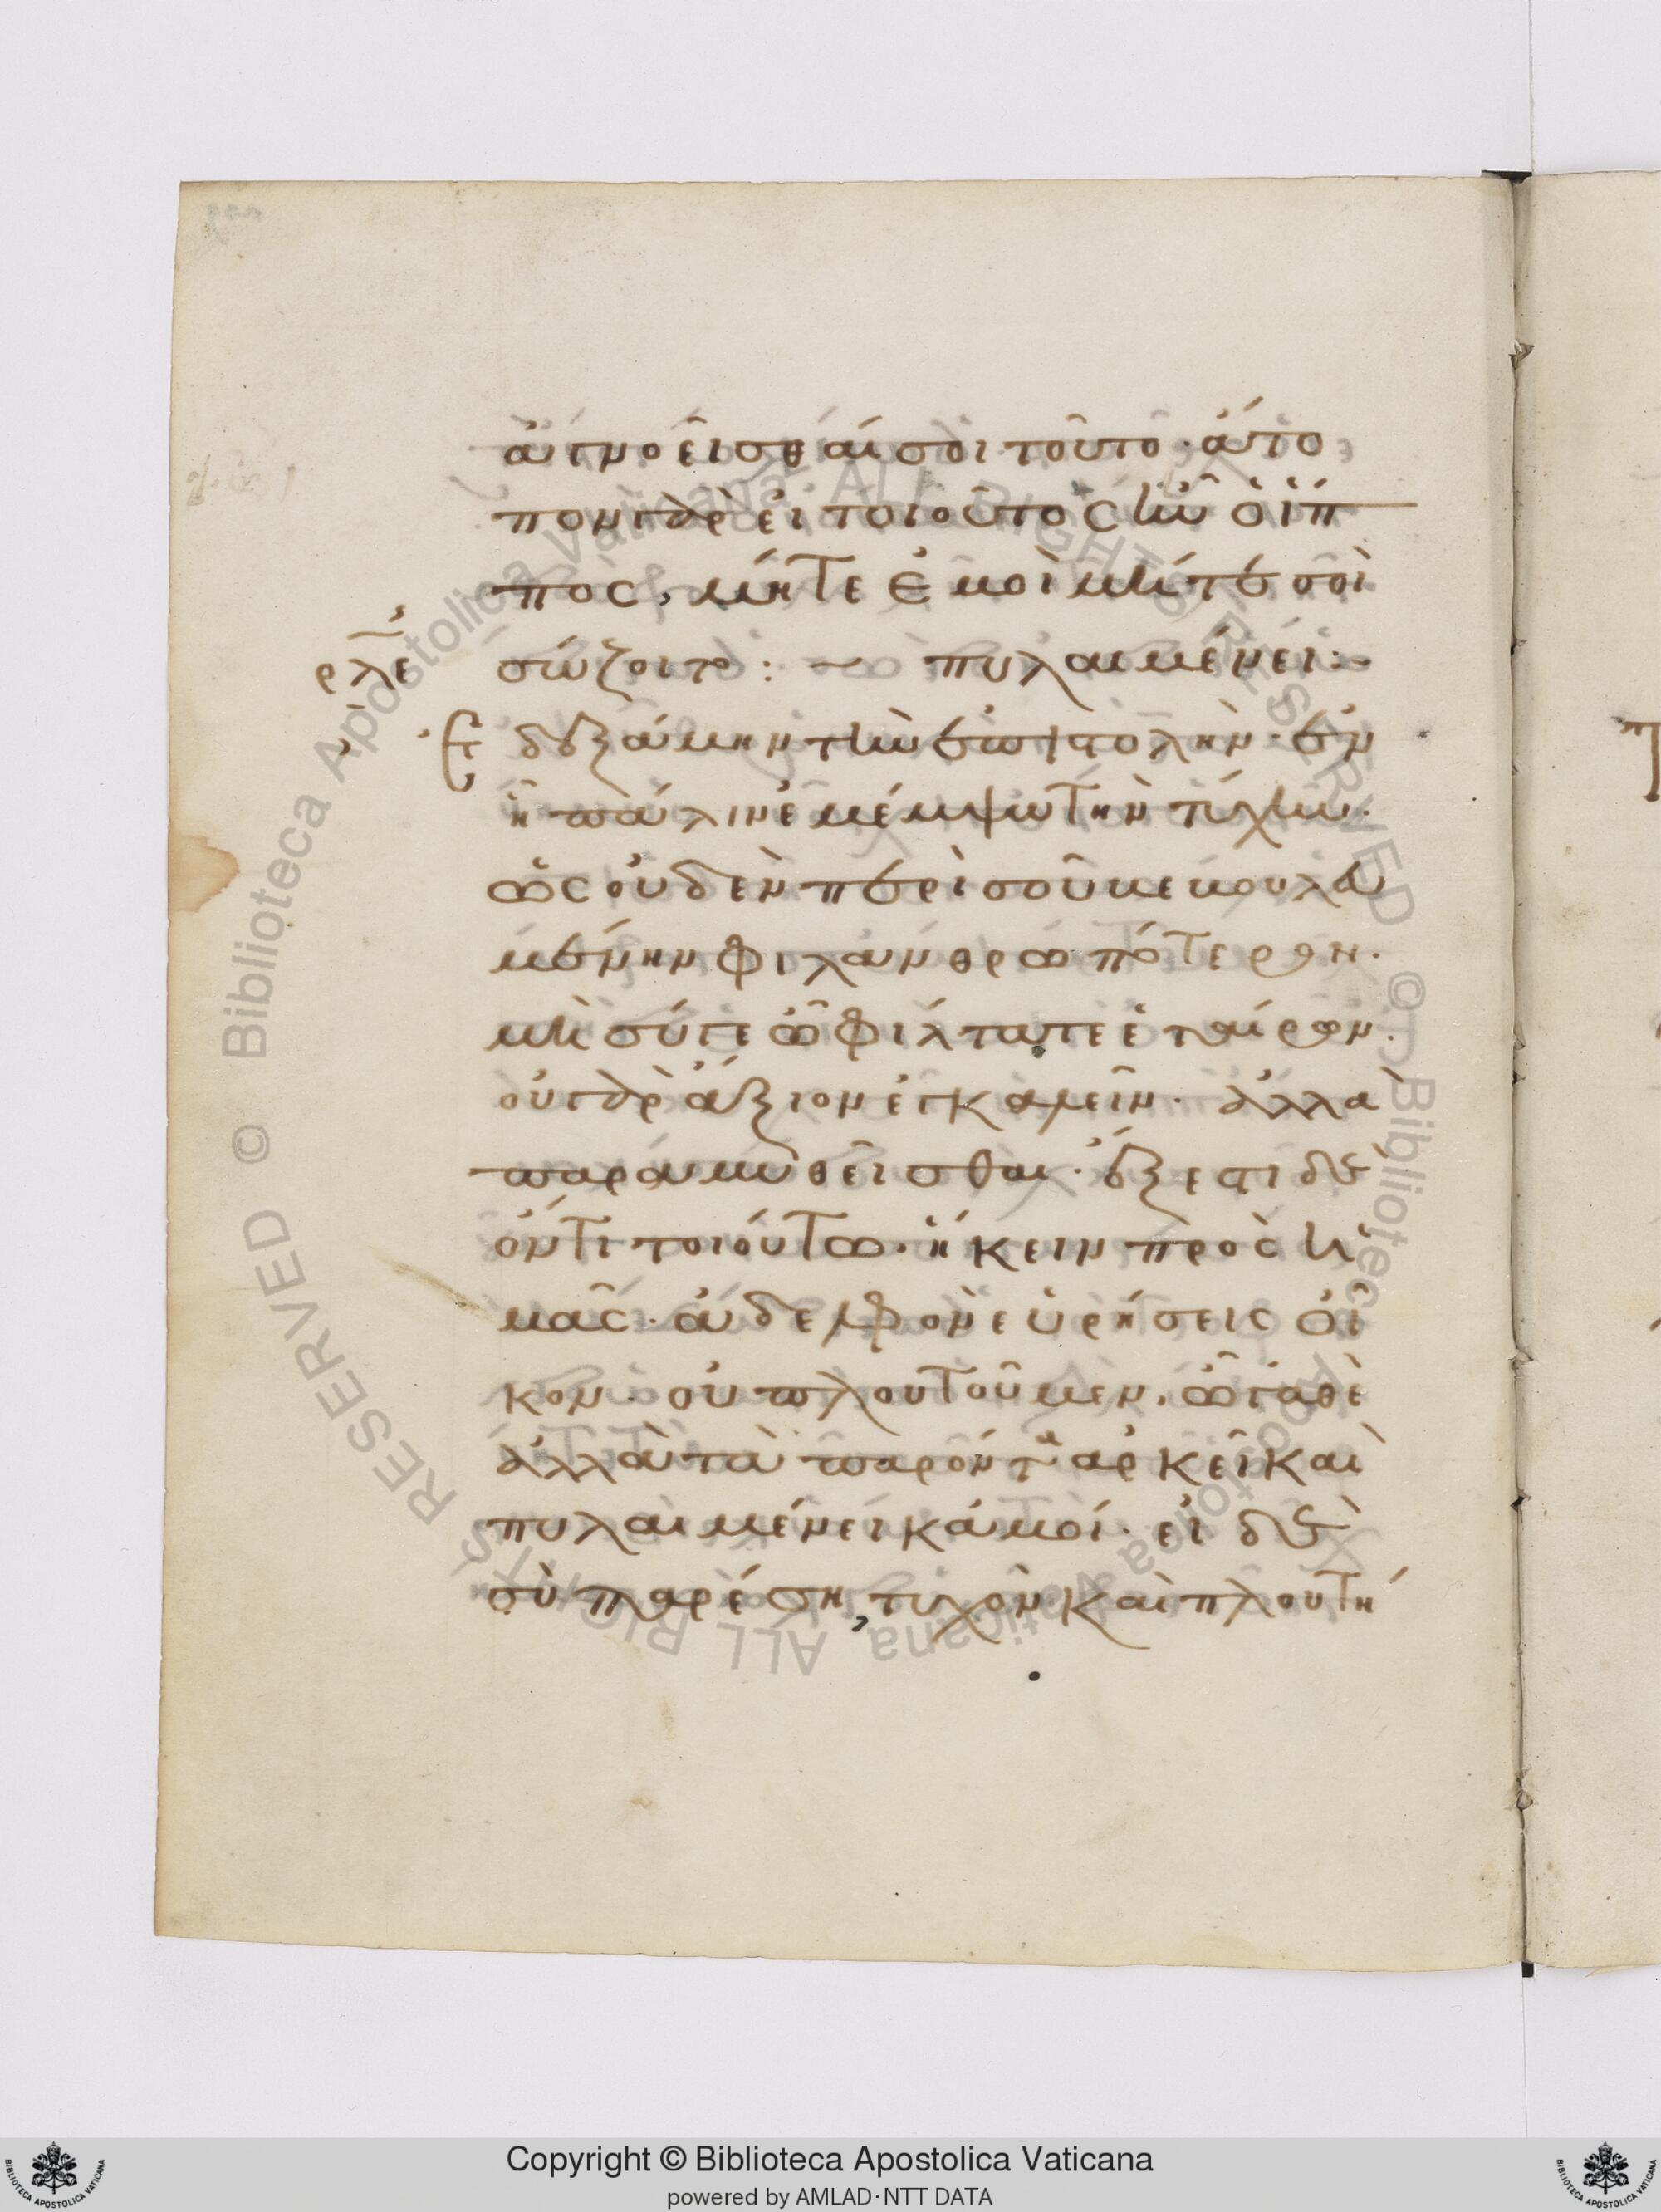 ἀγνοεῖσθαί σοι τοῦτο· ἄτο
πον γὰρ εἰ τοιοῦτος ὢν ὁ ἵπ
πος, μήτε ἐμοὶ μήτε σοὶ
σώζοιτο : ~ πυλαιμένει :~
ρλε
Ἐδεξάμην τὴν ἐπιστολὴν· ἐν
ᾗ πάλιν ἐμέμψω τὴν τύχην.
ὡς οὐδὲν περὶ σοῦ βεβουλευ
μένην φιλανθρωπότερον.
μὴ σύ γε ὦ φίλτατε ἑταίρων.
οὐ γὰρ ἄξιον ἐγκαλεῖν. ἀλλὰ
παραμυθεῖσθαι. ἔξεστι δὲ
ὄντι τοιούτω. ἥκειν πρὸς ἡ
μᾶς. ἀδελφὸν εὑρήσεις οἶ
κον. οὐ πλουτοῦμεν, ὦγαθὲ
ἀλλὰ τὰ παρόντα ἀρκεῖ καὶ
πυλαιμένει κἀμοί. εἰ δὲ
σὺ παρέση, τυχὸν καὶ πλούτη
Copyright © Biblioteca Apostolica Vaticana
powered by AMLAD·NTT DATA